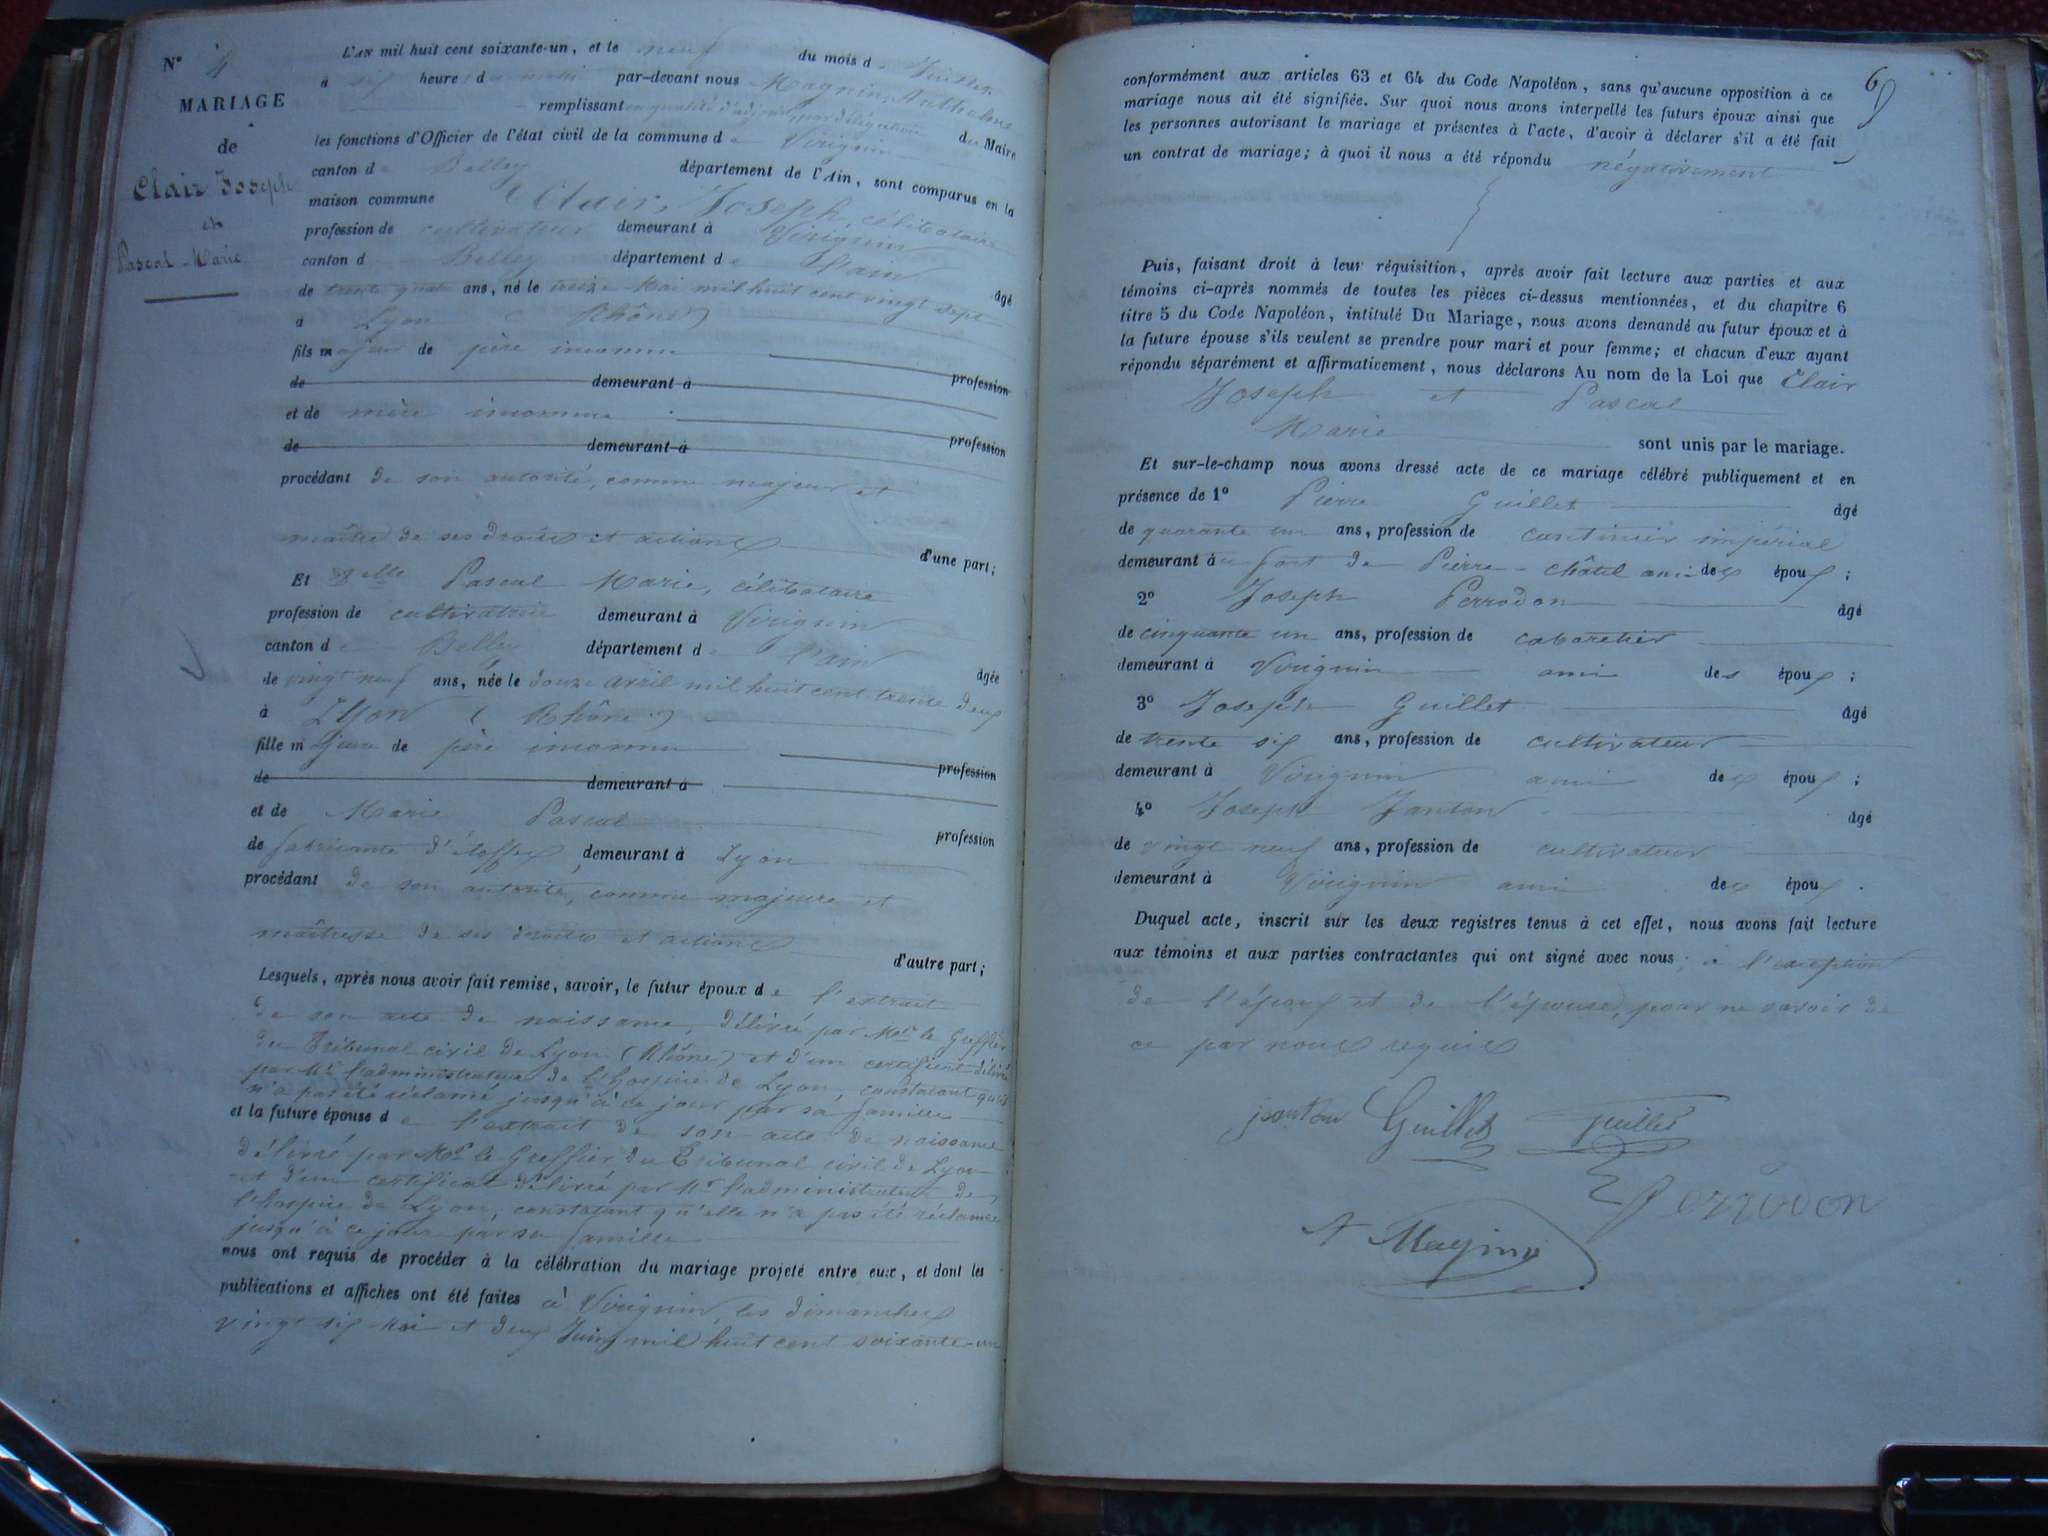 N° 4
MARIAGE
de
Clair Joseph
et
Pascal Marie
L'AN mil huit cent soixante-un, et le neuf du mois de Juillet
à six heure du matin par-devant nous Magnin, Anthelme
remplissant en qualité d'adjoint, par délégation du Maire
les fonctions d'Officier de l'état civil de la commune de Virignin
canton de Belley département de l'Ain, sont comparus en la
maison commune Clair, Joseph, célibataire
profession de cultivateur demeurant à Virignin
canton de Belley département de l'ain âgé
de trente quatre ans, né le treize Mai mil huit cent vingt sept
à Lyon (Rhône)
fils majeur de père inconnu profession
de demeurant à
et de mère inconnue profession
de demeurant à
procédant de son autorité, comme majeur et
maître de ses droits et actions d'une part;
Et Delle Pascal Marie, célibataire
profession de cultivatrice demeurant à Virignin
canton de Belley département de l'ain âgée
de vingt neuf ans, née le douze avril mil huit cent trente deux
à Lyon (Rhône)
fille majeure de père inconnu profession
de demeurant à
et de Marie Pascal profession
de fabricante d'étoffes, demeurant à Lyon
procédant de son autorité, comme majeure et
maîtresse de ses droits et actions d'autre part;
Lesquels, après nous avoir fait remise, savoir, le futur époux de l'extrait
de son acte de naissance, délivré par Mr le Greffier
du Tribunal civil de Lyon (Rhône) et d'un certificat délivré
par Mr l'administrateur de l'hospice de Lyon, constatant qu'il
n'a pas été réclamé jusqu'à ce jour par sa famille
et la future épouse de l'extrait de son acte de naissance
délivré par Mr le Greffier du Tribunal civil de Lyon
et d'un certificat délivré par Mr l'administrateur de
l'hospice de Lyon, constatant qu'elle n'a pas été réclamée
jusqu'à ce jour par sa famille
nous ont requis de procéder à la célébration du mariage projeté entre eux, et dont les
publications et affiches ont été faites à Virignin, les dimanches
vingt six Mai et deux Juin mil huit cent soixante-un
6
conformément aux articles 63 et 64 du Code Napoléon, sans qu'aucune opposition à ce
mariage nous ait été signifiée. Sur quoi nous avons interpellé les futurs époux ainsi que
les personnes autorisant le mariage et présentes à l'acte, d'avoir à déclarer s'il a été fait
un contrat de mariage; à quoi il nous a été répondu négativement
Puis, faisant droit à leur réquisition, après avoir fait lecture aux parties et aux
témoins ci-après nommés de toutes les pièces ci-dessus mentionnées, et du chapitre 6
titre 5 du Code Napoléon, intitulé Du Mariage, nous avons demandé au futur époux et à
la future épouse s'ils veulent se prendre pour mari et pour femme; et chacun d'eux ayant
répondu séparément et affirmativement, nous déclarons Au nom de la Loi que Clair
Joseph et Pascal
Marie sont unis par le mariage.
Et sur-le-champ nous avons dressé acte de ce mariage célébré publiquement et en
présence de 1° Pierre Guillet âgé
de quarante un ans, profession de cantinier impérial
demeurant au fort de Pierre-châtel ami des époux;
2° Joseph Perrodon âgé
de cinquante un ans, profession de cabaretier
demeurant à Virignin ami des époux;
3° Joseph Guillet âgé
de trente six ans, profession de cultivateur
demeurant à Virignin ami des époux;
4° Joseph Janton âgé
de vingt neuf ans, profession de cultivateur
demeurant à Virignin ami des époux.
Duquel acte, inscrit sur les deux registres tenus à cet effet, nous avons fait lecture
aux témoins et aux parties contractantes qui ont signé avec nous; à l'exception
de l'époux et de l'épouse, pour ne savoir de
ce par nous requis
janton Guillet guillet
Perrodon
A Magnin